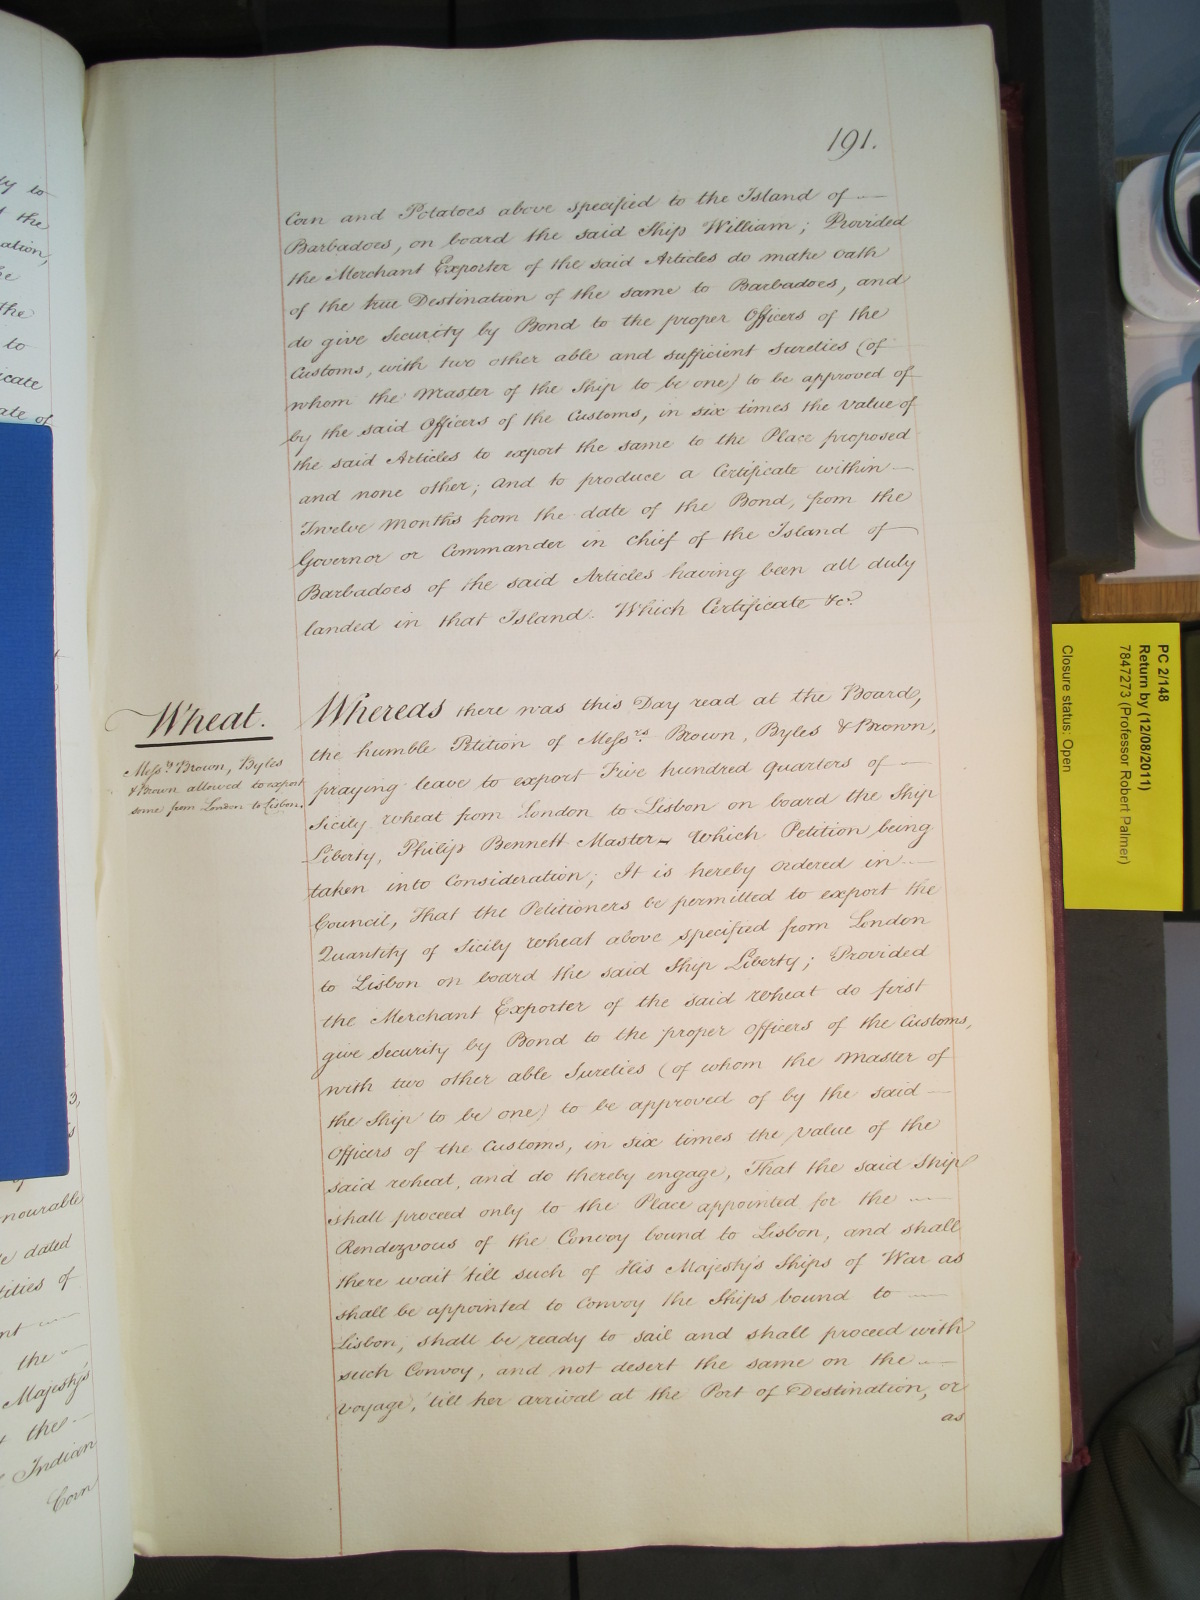 191.
Corn and Potatoes above specified to the Island of
Barbadoes, on board the said Ship William; Provided
the Merchant Exporter of the said Articles do make Oath
of the true Destination of the same to Barbadoes, and
do give Security by Bond to the proper Officers of the
Customs, with two other able and sufficient Sureties (of
whom the Master of the Ship to be one) to be approved of
by the said Officers of the Customs, in six times the Value of
the said Articles to export the same to the Place proposed
and none other; And to produce a Certificate within
Twelve Months from the date of the Bond, from the
Governor or Commander in Chief of the Island of
Barbadoes of the said Articles having been all duly
landed in that Island. Which Certificate &c.
Wheat.
Messrs. Brown, Byles
& Brown allowed to export
some from London to Lisbon.
Whereas there was this Day read at the Board,
the humble Petition of Messrs. Brown, Byles & Brown,
praying leave to export Five hundred Quarters of
Sicily Wheat from London to Lisbon on board the Ship
Liberty, Philip Bennett Master - Which Petition being
taken into Consideration; It is hereby Ordered in
Council, That the Petitioners be permitted to export the
Quantity of Sicily Wheat above specified from London
to Lisbon on board the said Ship Liberty; Provided
the Merchant Exporter of the said Wheat do first
give Security by Bond to the proper Officers of the Customs,
with two other able Sureties (of whom the Master of
the Ship to be one) to be approved of by the said
Officers of the Customs, in six times the Value of the
said Wheat, and do thereby engage, That the said Ship
shall proceed only to the Place appointed for the
Rendezvous of the Convoy bound to Lisbon, and shall
there wait 'till such of His Majesty's Ships of War as
shall be appointed to Convoy the Ships bound to
Lisbon, shall be ready to sail and shall proceed with
such Convoy, and not desert the same on the
Voyage, 'till her arrival at the Port of Destination, or
as
PC 2/148
Return by (12/08/2011)
7847273 (Professor Robert Palmer)
Closure status: Open
to
the
ation,
the
to
icate
ate of
3,
nourable
dated
tities of
nt
the
Majesty's
the
Indian
Corn